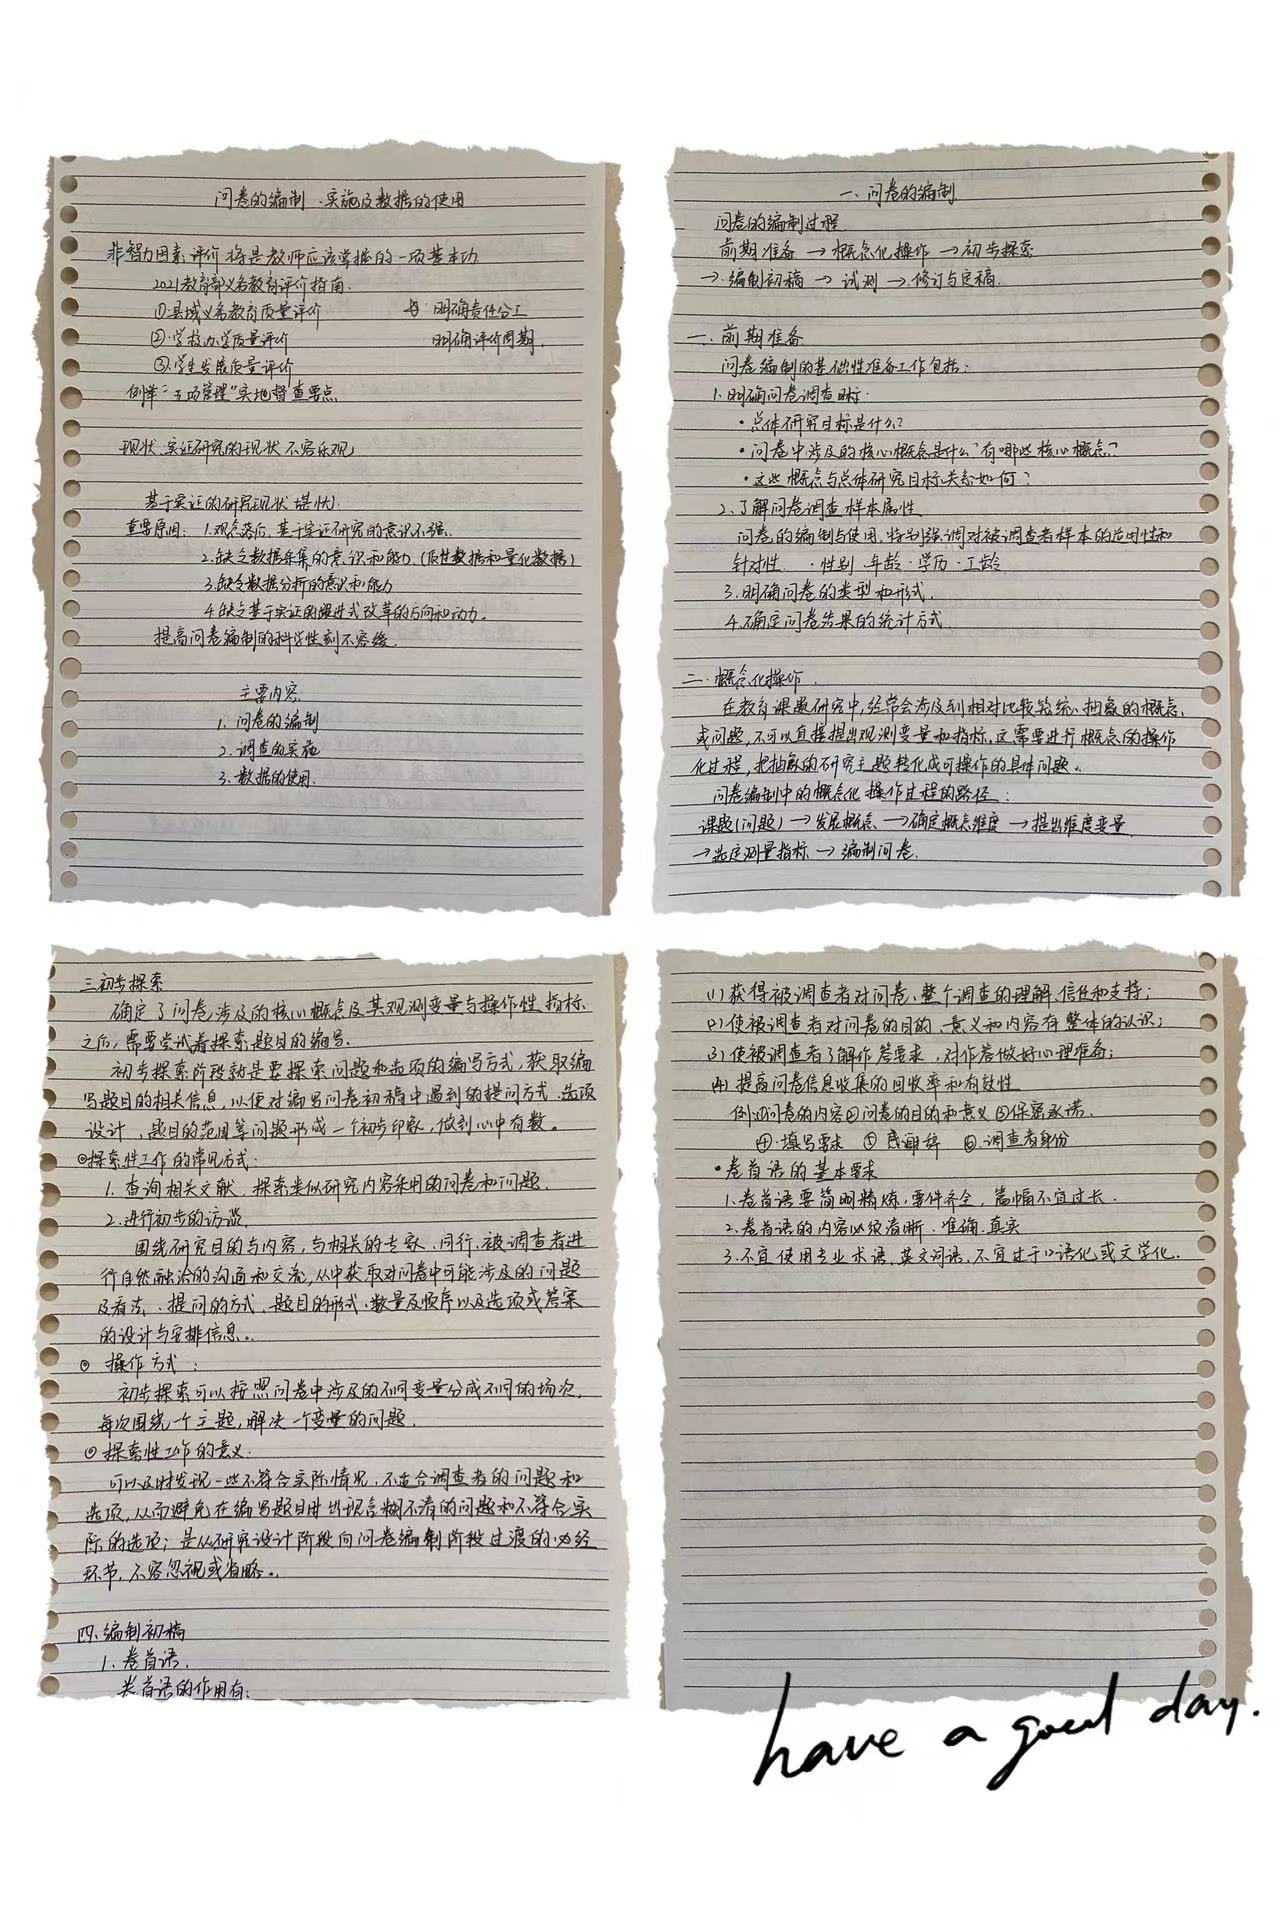 问卷的编制、实施及数据的使用
非智力因素评价将是教师应该掌握的一项基本功
2021教育部义务教育评价指南
①县域义务教育质量评价 明确责任分工
②学校办学质量评价 明确评价周期
③学生发展质量评价
例举:"五项管理"实地督查要点
现状:实证研究的现状不容乐观
基于实证的研究现状堪忧:
重要原因:1.观念落后,基于实证研究的意识不强
2.缺乏数据采集的意识和能力(质性数据和量化数据)
3.缺乏数据分析的意识和能力
4.缺乏基于实证的跟进式改革的方向和动力。
提高问卷编制的科学性刻不容缓。
主要内容
1.问卷的编制
2.调查的实施
3.数据的使用
一、问卷的编制
问卷的编制过程
前期准备→概念化操作→初步探索
→编制初稿→试测→修订与定稿.
一、前期准备
问卷编制的基础性准备工作包括:
1.明确问卷调查目标:
·总体研究目标是什么?
·问卷中涉及的核心概念是什么?有哪些核心概念?
·这些概念与总体研究目标关系如何?
2.了解问卷调查样本属性
问卷的编制与使用,特别强调对被调查者样本的适用性和
针对性 ·性别·年龄·学历·工龄
3.明确问卷的类型和形式.
4.确定问卷结果的统计方式
二、概念化操作.
在教育课题研究中,经常会涉及到相对比较笼统、抽象的概念
或问题,不可以直接提出观测变量和指标,这需要进行概念的操作
化过程,把抽象的研究主题转化成可操作的具体问题。
问卷编制中的概念化操作过程的路径:
课题(问题)→发展概念→确定概念维度→提出维度变量
→选定测量指标→编制问卷.
三初步探索
确定了问卷涉及的核心概念及其观测变量与操作性指标
之后,需要尝试着探索题目的编写.
初步探索阶段就是要探索问题和选项的编写方式,获取编
写题目的相关信息,以便对编写问卷初稿中遇到的提问方式、选项
设计、题目的范围等问题形成一个初步印象,做到心中有数。
◎探索性工作的常见方式:
1.查询相关文献,探索类似研究内容采用的问卷和问题.
2.进行初步的访谈
围绕研究目的与内容,与相关的专家、同行、被调查者进
行自然融洽的沟通和交流,从中获取对问卷中可能涉及的问题
及看法、提问的方式、题目的形式、数量及顺序以及选项或答案
的设计与安排信息。
◎ 操作方式:
初步探索可以按照问卷中涉及的不同变量分成不同的场次,
每次围绕一个主题,解决一个变量的问题.
◎探索性工作的意义:
可以及时发现一些不符合实际情况,不适合调查者的问题和
选项,从而避免在编写题目时出现含糊不清的问题和不符合实
际的选项;是从研究设计阶段向问卷编制阶段过渡的必经
环节,不容忽视或省略。
四、编制初稿
1、卷首语.
卷首语的作用有:
(1)获得被调查者对问卷、整个调查的理解、信任和支持;
(2)使被调查者对问卷的目的、意义和内容有整体的认识;
(3)使被调查者了解作答要求,对作答做好心理准备;
(4)提高问卷信息收集的回收率和有效性
例:①问卷的内容②问卷的目的和意义③保密承诺.
④.填写要求 ⑤感谢辞 ⑥.调查者身份
·卷首语的基本要求
1.卷首语要简明精炼,要件齐全,篇幅不宜过长.
2.卷首语的内容必须清晰、准确、真实
3.不宜使用专业术语,英文词语,不宜过于口语化或文学化.
have a good day.